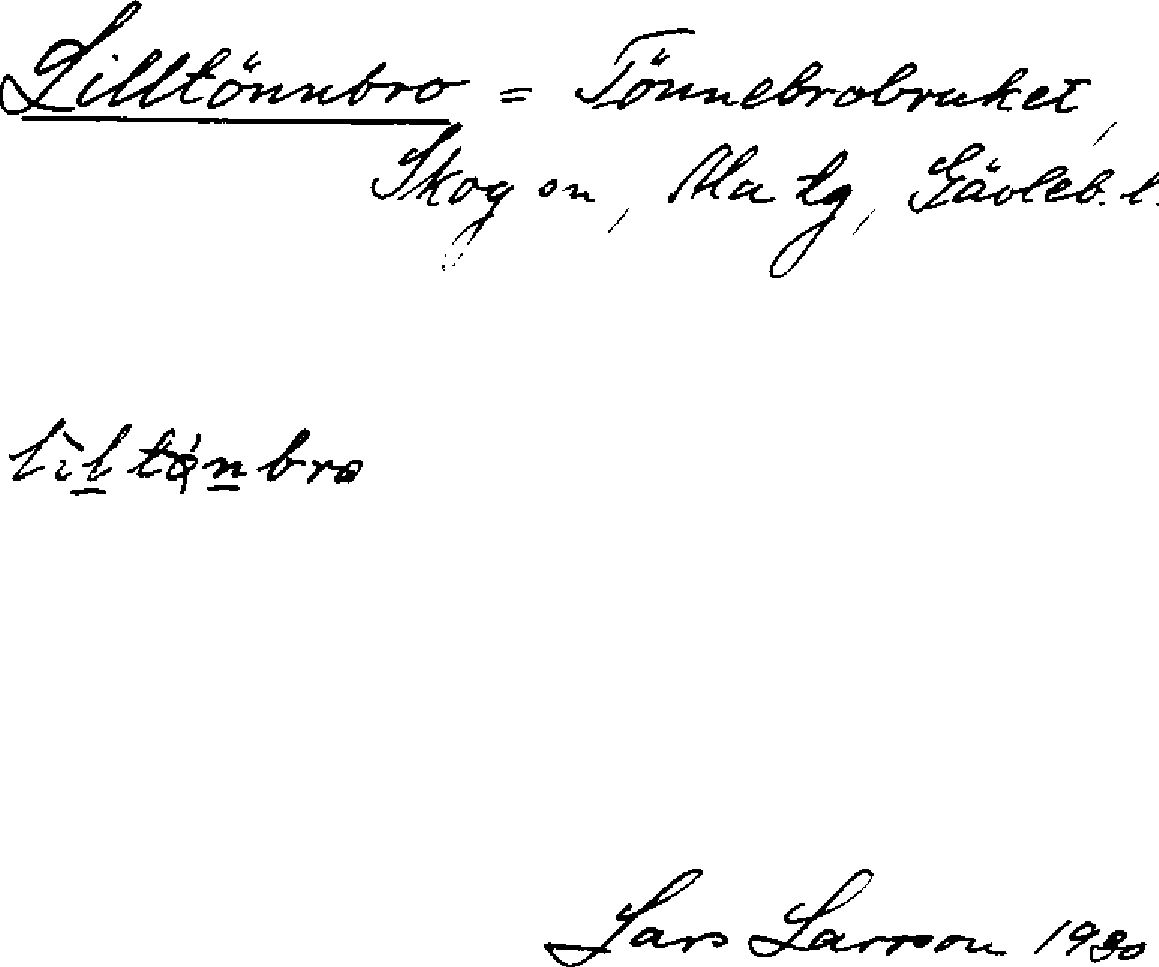 Lilltönnbro = Tönnebrobruket,
Skog sn, Ala tg, Gävleb. l.
lil tönbro
Lars Larsson 1930